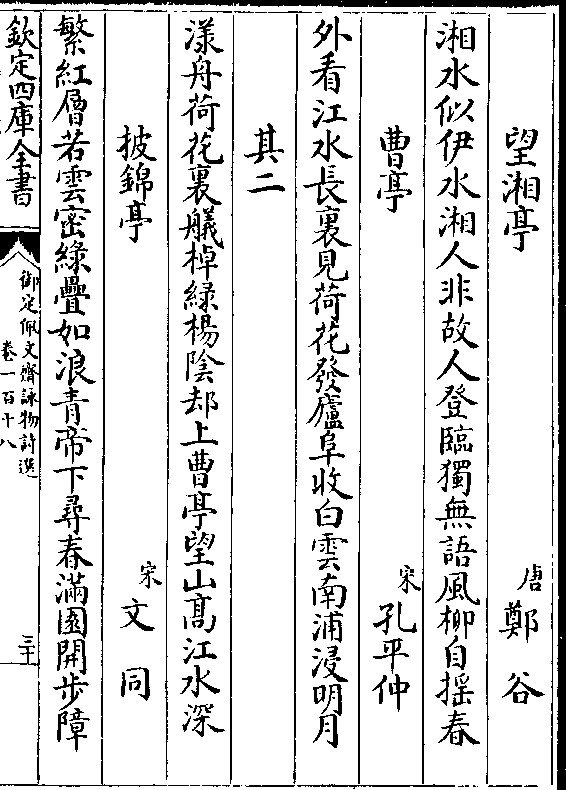 望湘亭　唐鄭谷
湘水似伊水湘人非故人登臨獨無語風柳自揺春
曹亭　宋孔平仲
外看江水長裏見荷花發廬阜收白雲南浦浸明月
其二
漾舟荷花裏艤棹緑楊陰却上曹亭望山髙江水深
披錦亭　宋文同
繁紅層若雲密緑疊如浪青帝下尋春滿園開步障
欽定四庫全書
御定佩文齋詠物詩選
卷一百十八
三十